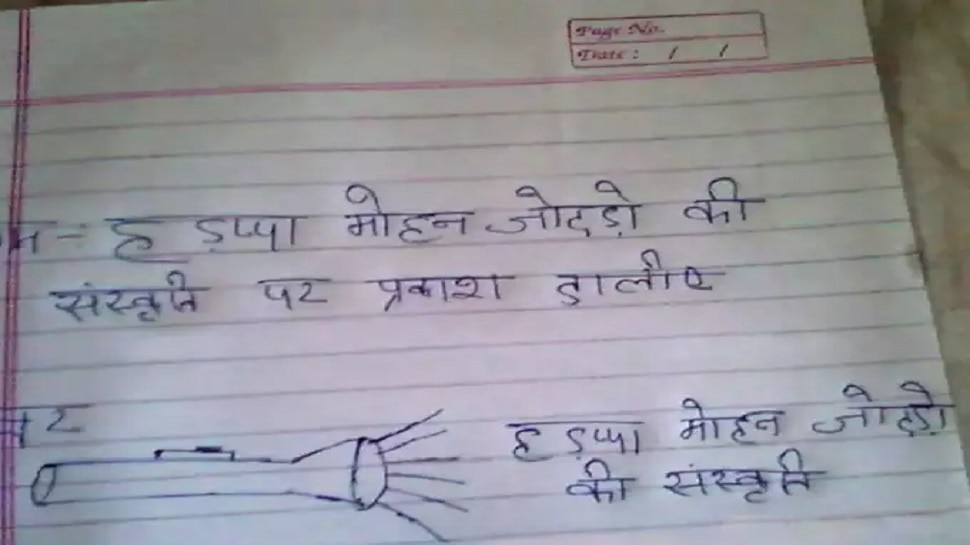 Page No.
Date: / /
हड़प्पा मोहन जोदड़ो की
संस्कृति पर प्रकाश डालीए
हड़प्पा मोहन जोदड़ो
की संस्कृति